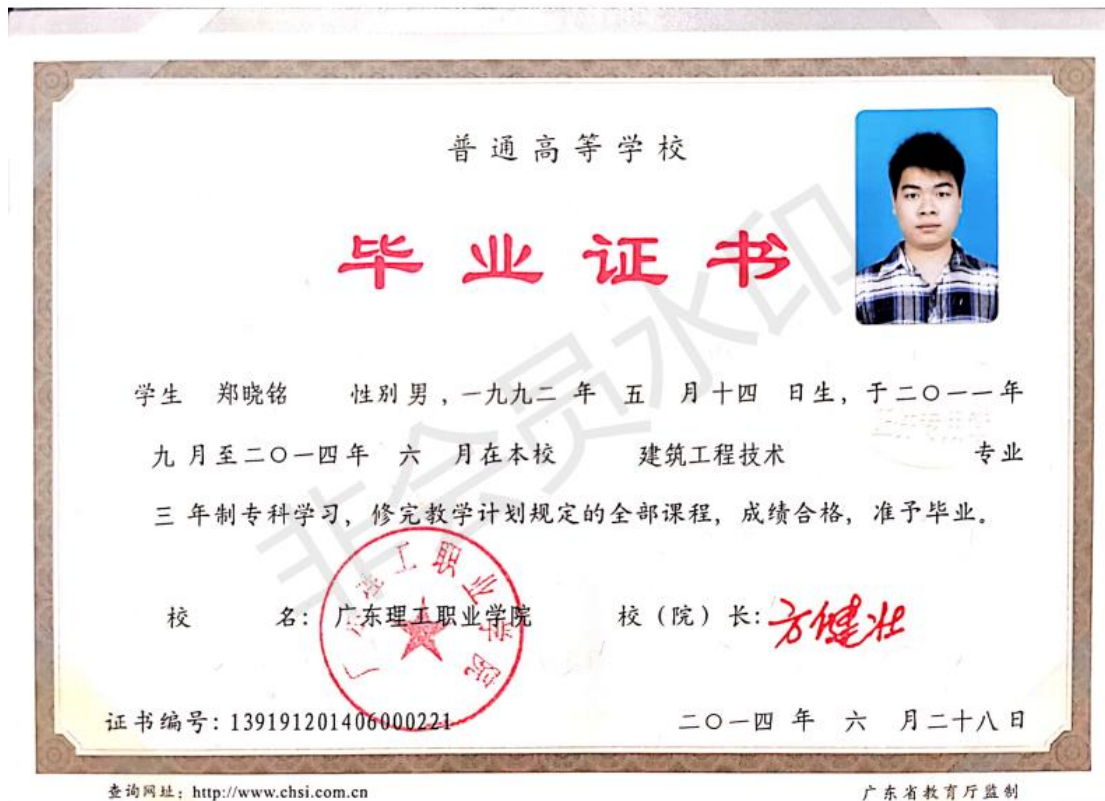 普通高等学校
毕业证书
学生 郑晓铭 性别男，一九九二 年 五 月十四 日生，于二〇一一年
九月至二〇一四年 六 月在本校 建筑工程技术 专业
三 年制专科学习，修完教学计划规定的全部课程，成绩合格，准予毕业。
校 名：广东理工职业学院 校（院）长：方健壮
广东理工职业学院
证书编号：139191201406000221 二〇一四 年 六 月二十八日
查询网址：http://www.chsi.com.cn 广东省教育厅监制
非会员水印